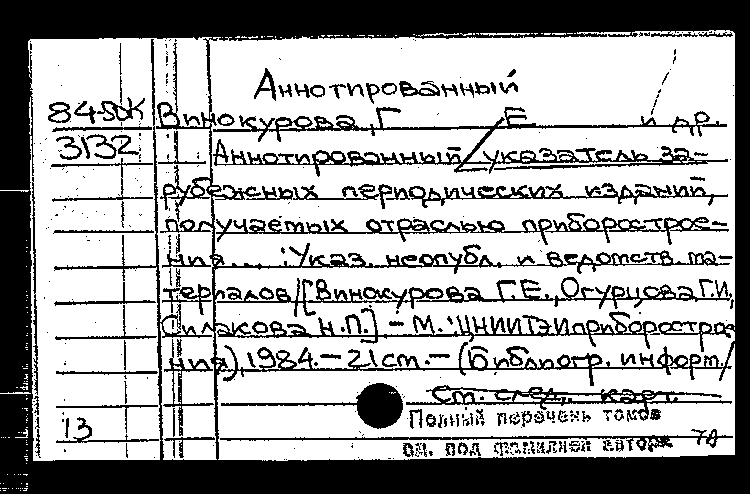 Аннотированный
84-5ДК Винокурова, Г Е и др.
3132 Аннотированный указатель за-
рубежных периодических изданий,
получаемых отраслью приборострое-
ния... : Указ. неопубл. и ведомств. ма-
териалов/[Винокурова Г.Е., Огурцова Г.И.,
Силакова Н.П.] – М. : ЦНИИТЭИприборострое
ния), 1984. – 21 см. – (Библиогр. информ./
См. след. карт.
13 Полный перечень томов
см. под фамилией автора